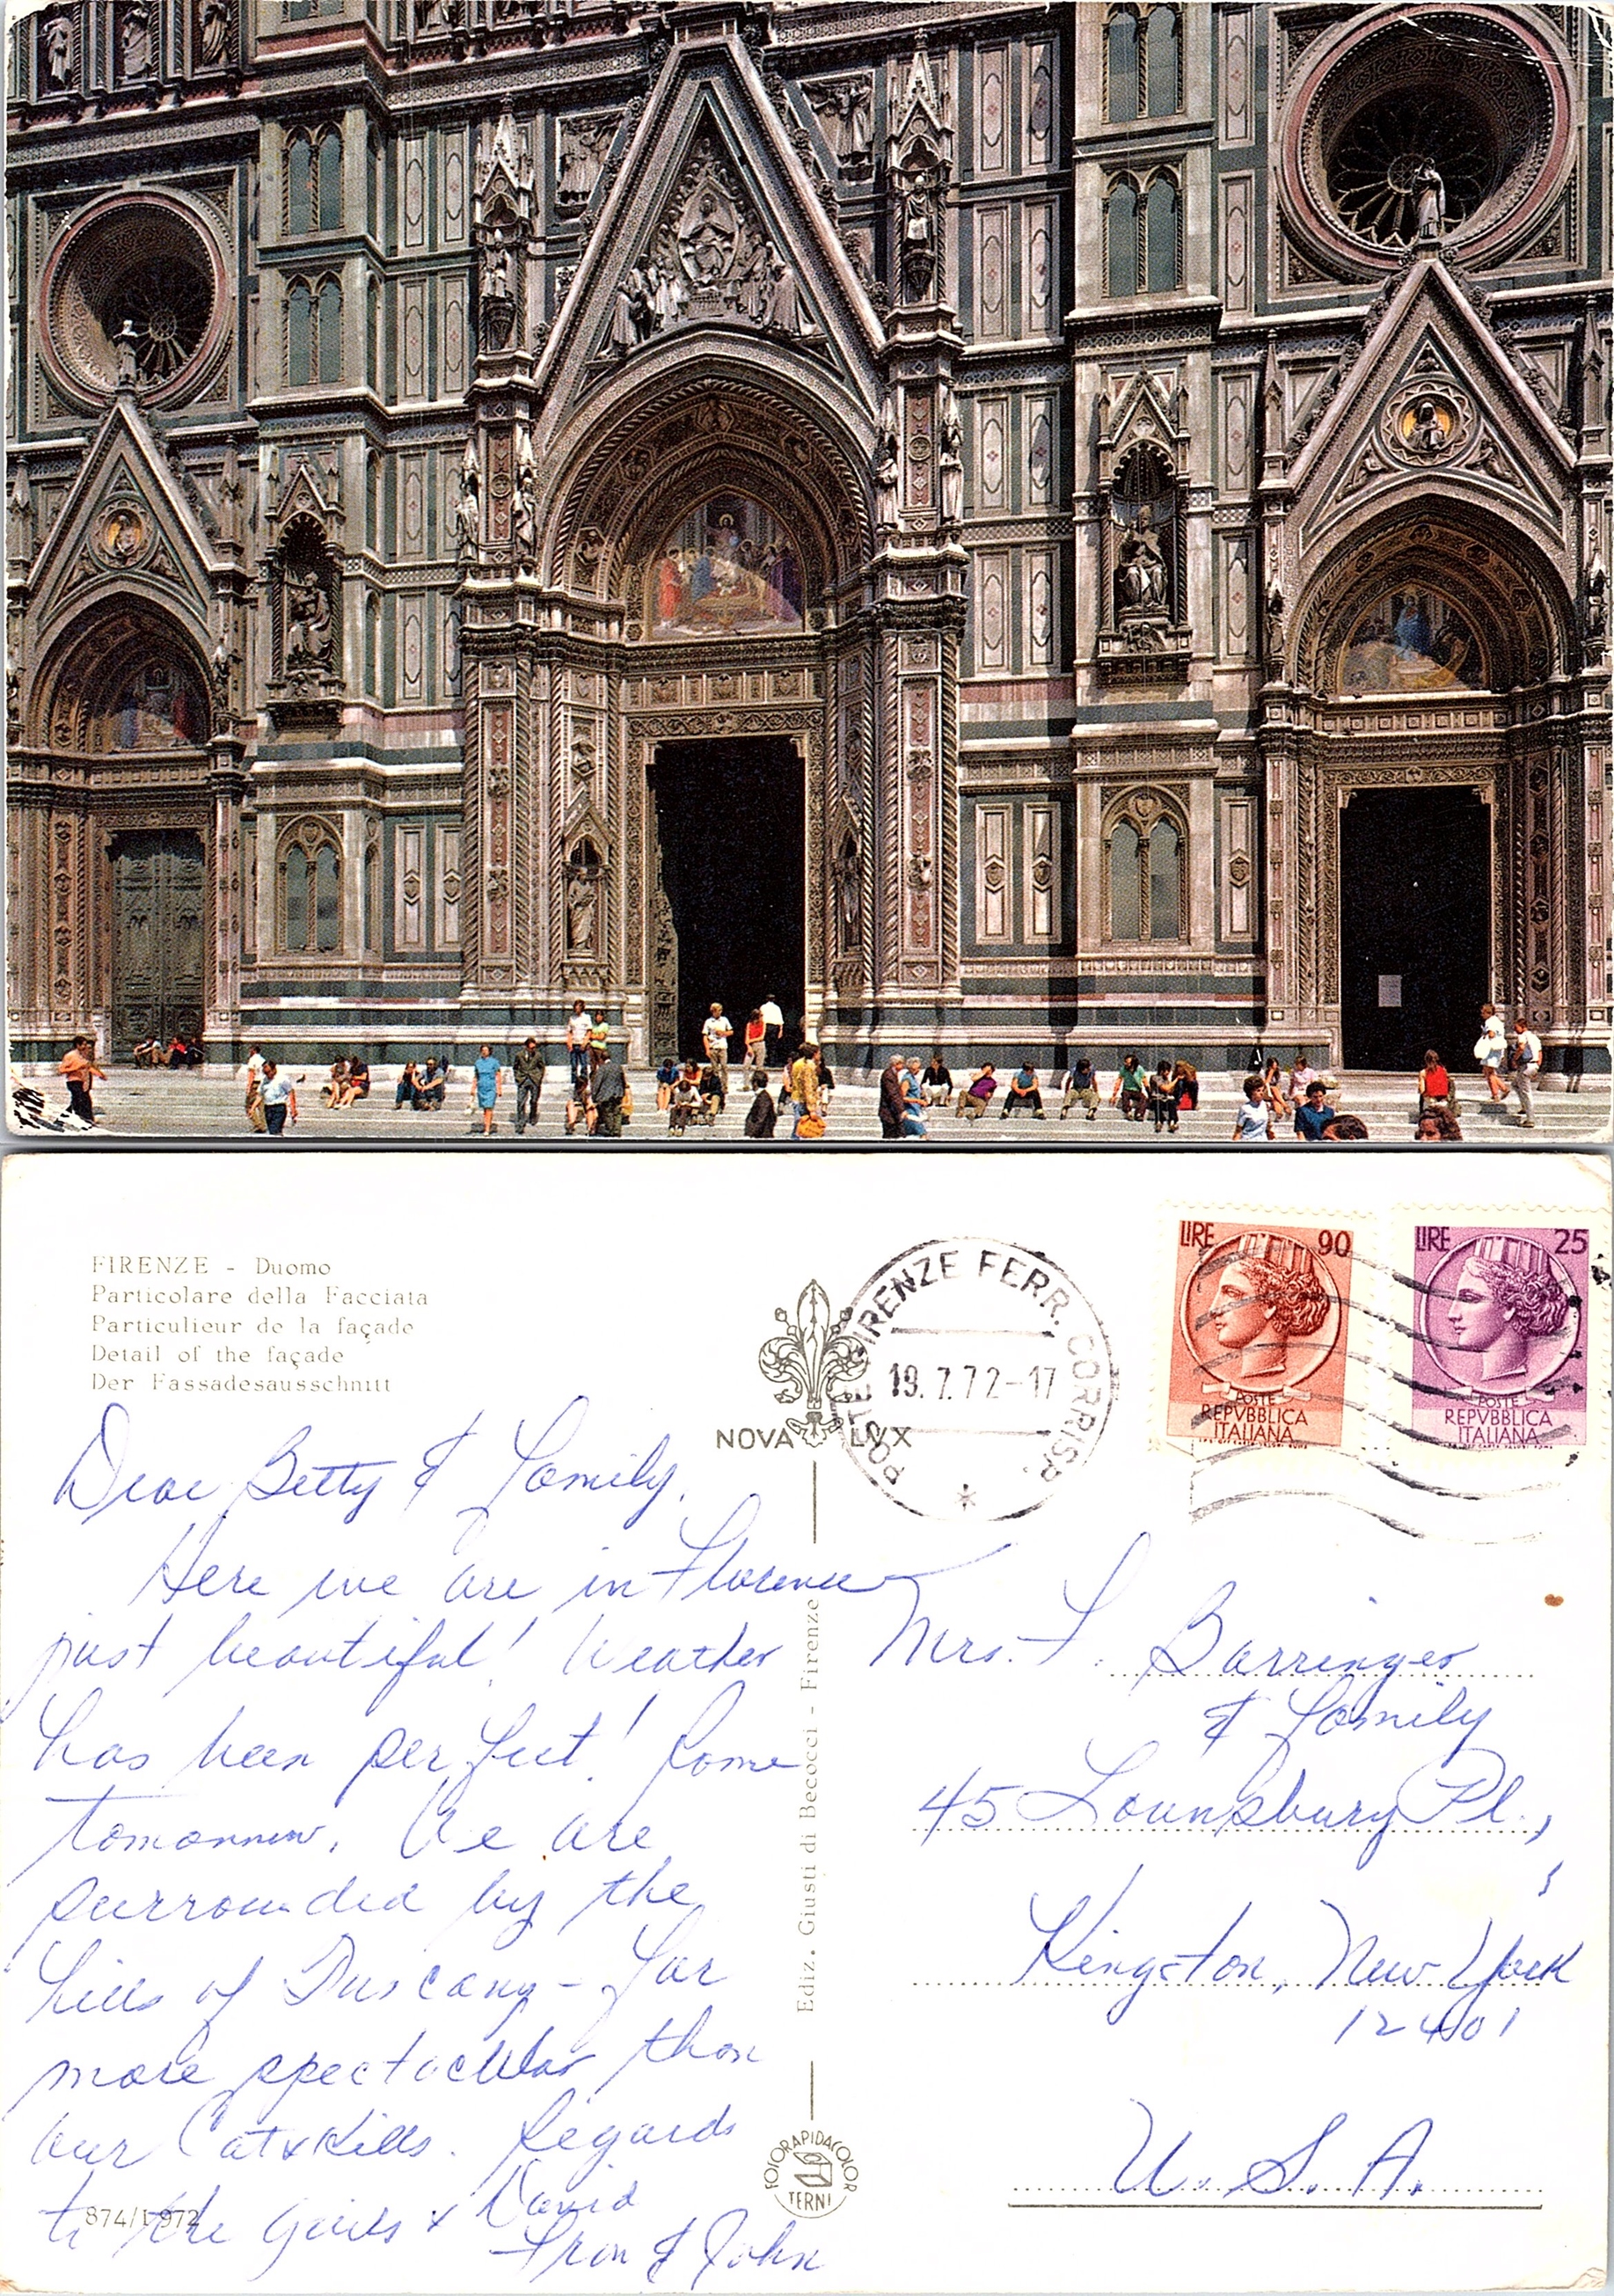 FIRENZE - Duomo
Particolare della Facciata
Particulieur de la façade
Detail of the façade
Der Fassadesausschnitt
NOVA LVX
POSTE FIRENZE FERR. CORRISP.
19.7.72-17
LIRE 90
POSTE
REPVBBLICA
ITALIANA
LIRE 25
POSTE
REPVBBLICA
ITALIANA
Dear Betty & Family,
Here we are in Florence
just beautiful! Weather
has been perfect! Rome
tomorrow. We are
surrounded by the
hills of Tuscany - far
more spectacular than
our Catskills. Regards
to the girls & David
Fran & John
874/L 972
Ediz. Giusti di Becocci - Firenze
FOTORAPIDACOLOR
TERNI
Mrs. F. Barringer
& Family
45 Lounsbury Pl.,
Kingston, New York
12401
U.S.A.